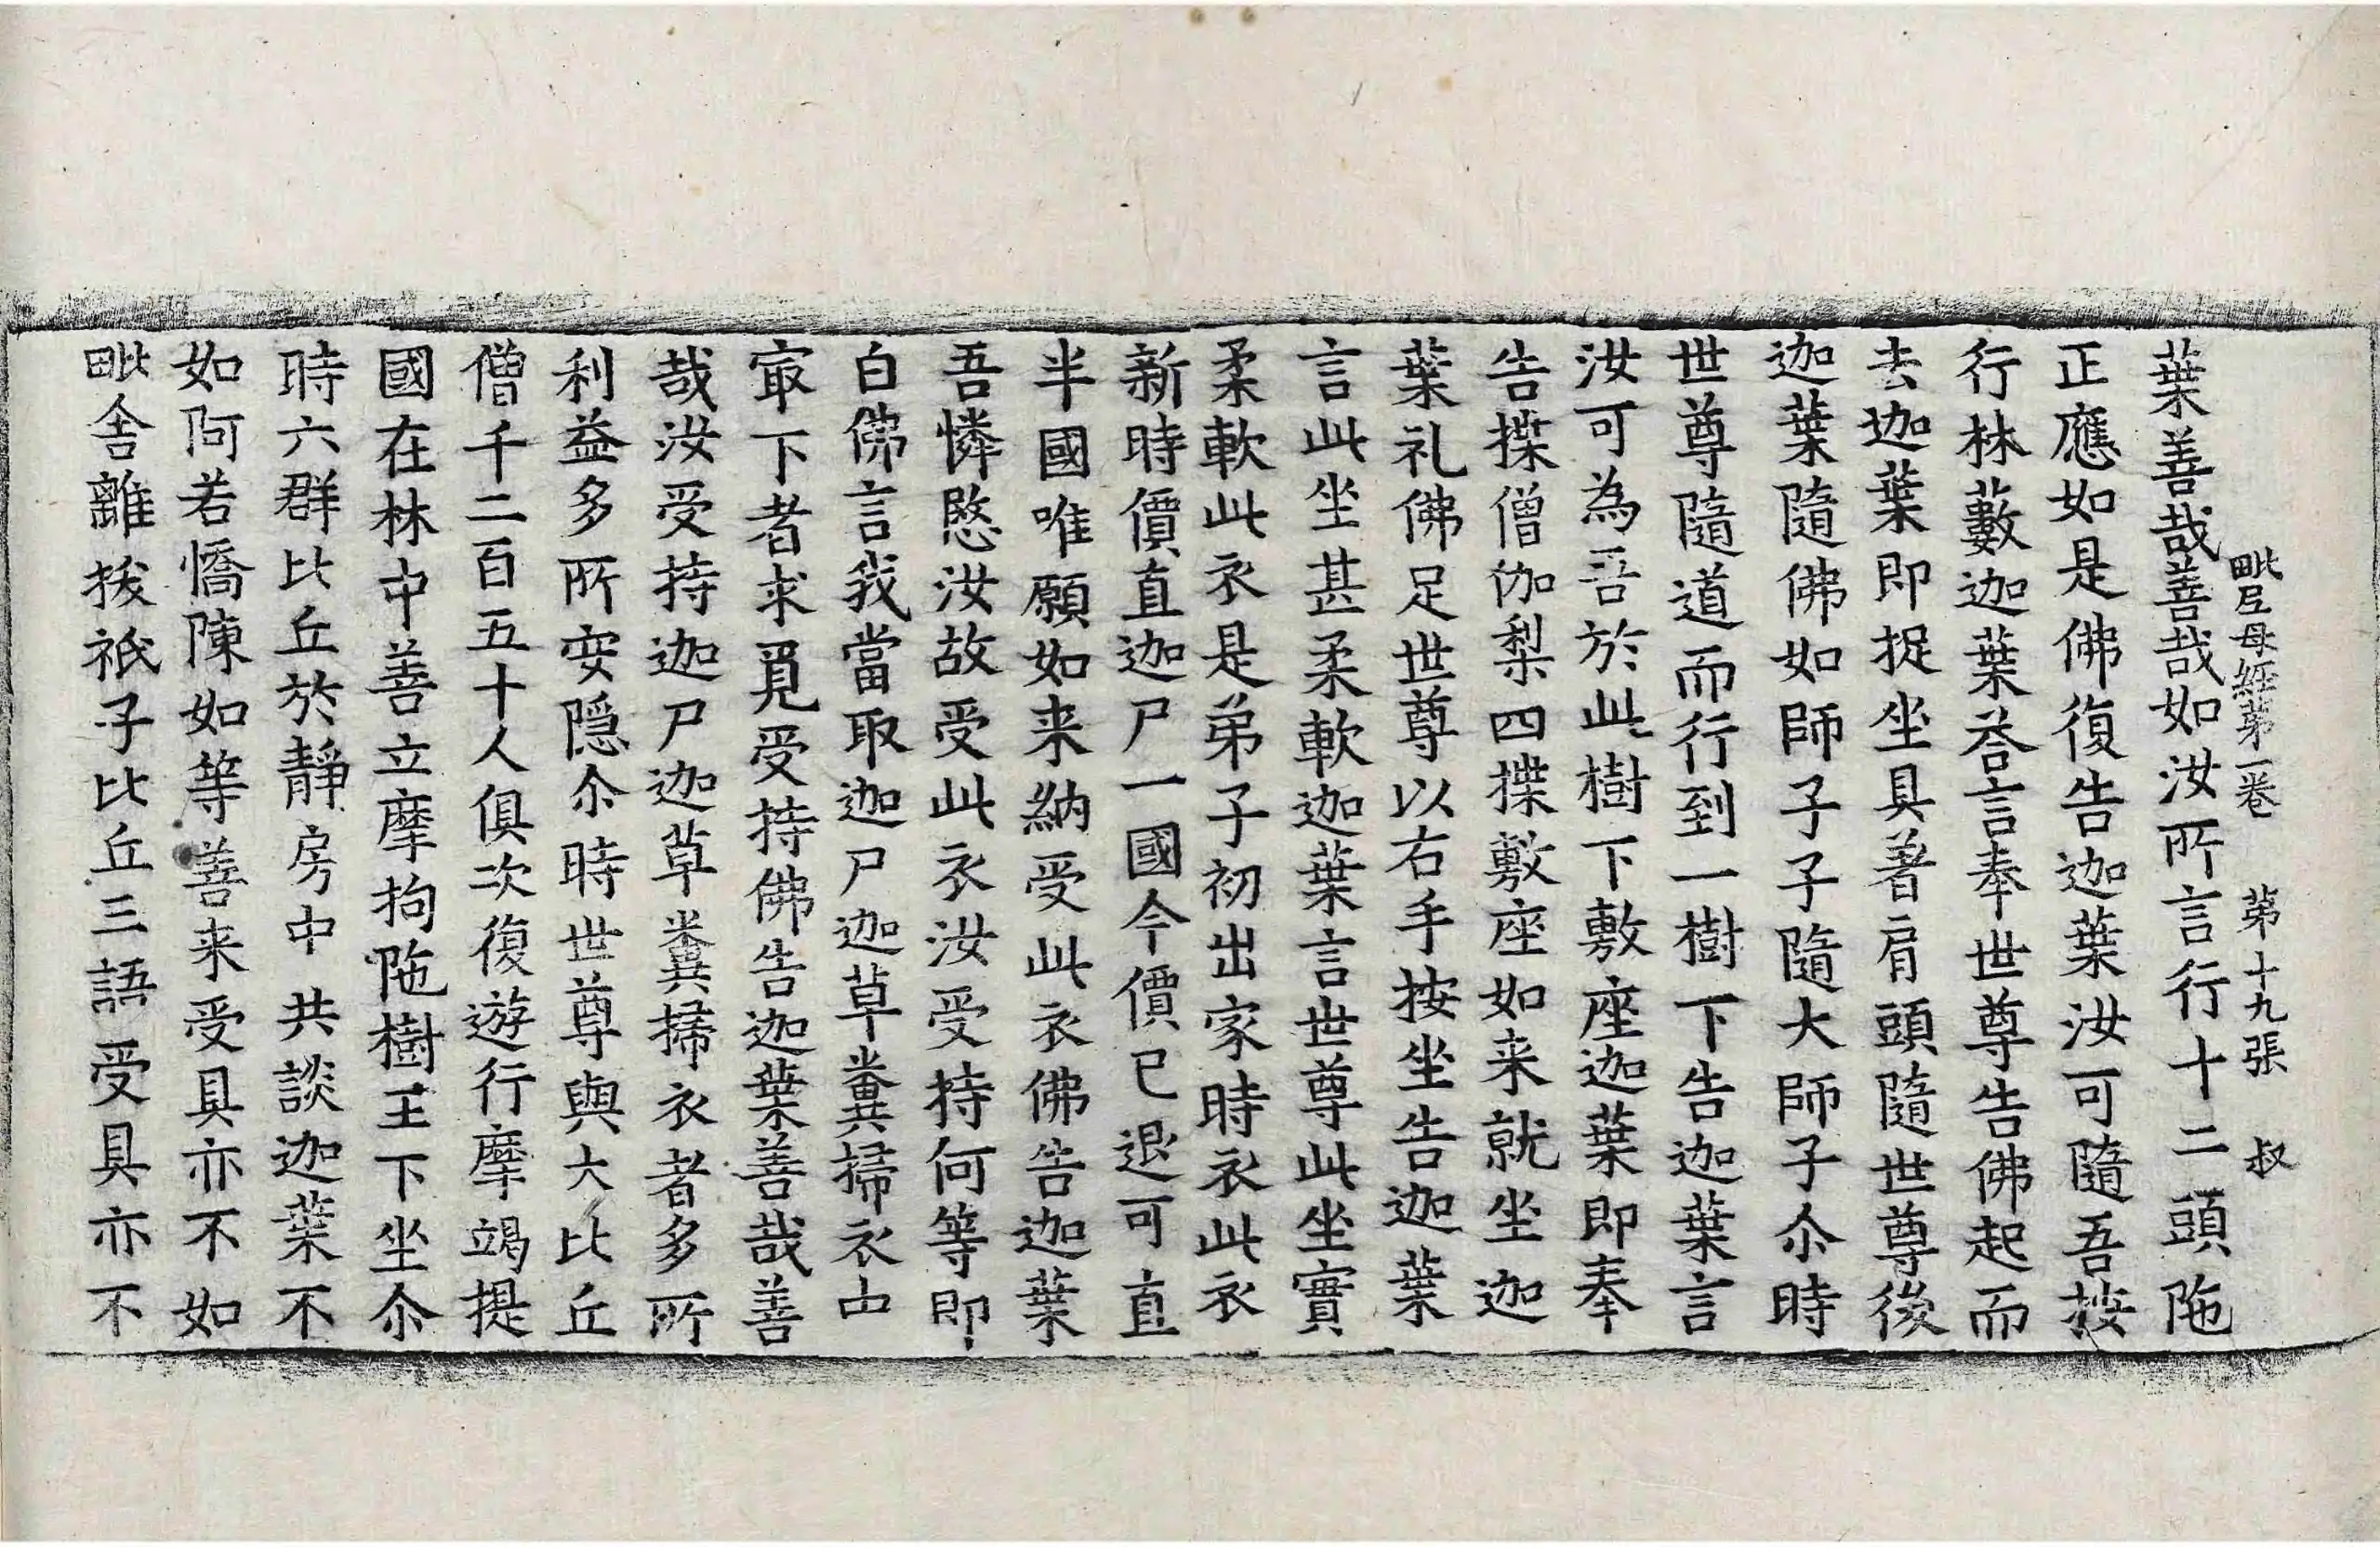 毗尼母經第一卷 第十九張 叔
葉善哉善哉如汝所言行十二頭陁
正應如是佛復告迦葉汝可隨吾按
行林藪迦葉荅言奉世尊告佛起而
去迦葉即捉坐具著肩頭隨世尊後
迦葉隨佛如師子子隨大師子尒時
世尊隨道而行到一樹下告迦葉言
汝可為吾於此樹下敷座迦葉即奉
告揲僧伽梨四揲敷座如来就坐迦
葉礼佛足世尊以右手按坐告迦葉
言此坐甚柔軟迦葉言世尊此坐實
柔軟此衣是弟子初出家時衣此衣
新時價直迦尸一國今價已退可直
半國唯願如来納受此衣佛告迦葉
吾憐愍汝故受此衣汝受持何等即
白佛言我當取迦尸迦草糞掃衣中
㝡下者求覓受持佛告迦葉善哉善
哉汝受持迦尸迦草糞掃衣者多所
利益多所安隱尒時世尊與大比丘
僧千二百五十人俱次復遊行摩竭提
國在林中善立摩拘陁樹王下坐尒
時六群比丘於靜房中共談迦葉不
如阿若憍陳如等善来受具亦不如
毗舍離拔祇子比丘三語受具亦不